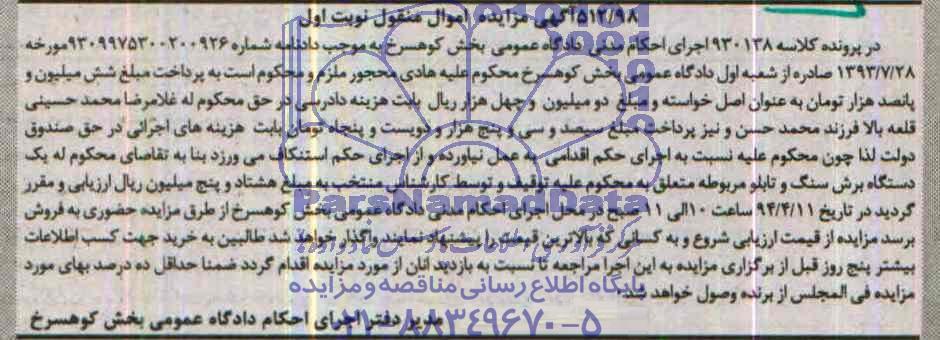 ۵۱۲/۹۸آگهی مزایده اموال منقول نوبت اول
در پرونده کلاسه ۹۳۰۱۳۸ اجرای احکام مدنی دادگاه عمومی بخش کوهسرخ به موجب دادنامه شماره ۹۳۰۹۹۷۵۳۰۰۲۰۰۹۲۶مورخه
۱۳۹۳/۷/۲۸ صادره از شعبه اول دادگاه عمومی بخش کوهسرخ محکوم علیه هادی محجور ملزم و محکوم است به پرداخت مبلغ شش میلیون و
پانصد هزار تومان به عنوان اصل خواسته و مبلغ دو میلیون و چهل هزار ریال بابت هزینه دادرسی در حق محکوم له غلامرضا محمد حسینی
قلعه بالا فرزند محمد حسن و نیز پرداخت مبلغ سیصد و سی و پنج هزار و دویست و پنجاه تومان بابت هزینه های اجرائی در حق صندوق
دولت لذا چون محکوم علیه نسبت به اجرای حکم اقدامی به عمل نیاورده و از اجرای حکم استنکاف می ورزد بنا به تقاضای محکوم له یک
دستگاه برش سنگ و تابلو مربوطه متعلق به محکوم علیه توقیف و توسط کارشناس منتخب به مبلغ هشتاد و پنج میلیون ریال ارزیابی و مقرر
گردید در تاریخ ۹۴/۴/۱۱ ساعت ۱۰الی ۱۱ صبح در محل اجرای احکام مدنی دادگاه عمومی بخش کوهسرخ از طرق مزایده حضوری به فروش
برسد مزایده از قیمت ارزیابی شروع و به کسانی که بالاترین قیمت را پیشنهاد نمایند واگذار خواهد شد طالبین به خرید جهت کسب اطلاعات
بیشتر پنج روز قبل از برگزاری مزایده به این اجرا مراجعه تا نسبت به بازدید انان از مورد مزایده اقدام گردد ضمنا حداقل ده درصد بهای مورد
مزایده فی المجلس از برنده وصول خواهد شد.
مدیر دفتر اجرای احکام دادگاه عمومی بخش کوهسرخ
ParsNamadData
پایگاه اطلاع رسانی مناقصه و مزایده
۰۲۱-۸۸۳۴۹۶۷۰-۵